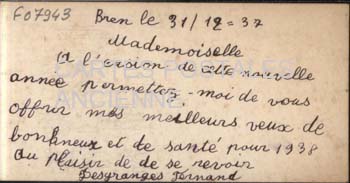 F07943
Bren le 31/12 = 37
Mademoiselle
A l'ersion de cette nouvelle
année permettez-moi de vous
offrir mes meilleurs veux de
bonheux et de santé pour 1938
Au plaisir de de se revoir
Desgranges Fernand
CARTES POSTALES
ANCIENNES